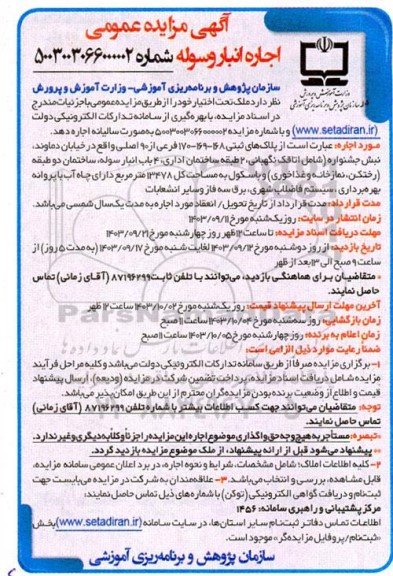 آگهی مزایده عمومی
اجاره انبار وسوله شماره ۵۰۰۳۰۰۳۰۶۶۰۰۰۰۰۲
سازمان پژوهش و برنامه‌ریزی آموزشی- وزارت آموزش و پرورش
نظر دارد ملک تحت اختیار خود را از طریق مزایده عمومی با جزئیات مندرج
در اسناد مزایده، با بهره‌گیری از سامانه تدارکات الکترونیکی دولت
(www.setadiran.ir) و با شماره مزایده ۵۰۰۳۰۰۳۰۶۶۰۰۰۰۰۲ به‌صورت سالیانه اجاره دهد.
مورد اجاره: عبارت است از پلاک‌های ثبتی ۶۸-۶۹-۱۷۰ فرعی از ۹۰ اصلی واقع در خیابان دماوند،
نبش جشنواره (شامل اتاقک نگهبانی، ۲ طبقه ساختمان اداری، ۴ باب انبار سوله، ساختمان دو طبقه
(رختکن، نمازخانه و غذاخوری) و باسکول به مساحت کل ۱۳۴۷۸ مترمربع دارای چاه آب با پروانه
بهره‌برداری، سیستم فاضلاب شهری، برق سه فاز و سایر انشعابات
مدت قرارداد: مدت قرارداد از تاریخ تحویل/ انعقاد مورد اجاره به مدت یکسال شمسی می‌باشد.
زمان انتشار در سایت: روز یک‌شنبه مورخ ۱۴۰۳/۰۹/۱۱
مهلت دریافت اسناد مزایده: تا ساعت ۱۲ ظهر روز چهارشنبه مورخ ۱۴۰۳/۰۹/۲۱
تاریخ بازدید: از روز دوشنبه مورخ ۱۴۰۳/۰۹/۱۲ لغایت شنبه مورخ ۱۴۰۳/۰۹/۱۷ (به مدت ۵ روز) از
ساعت ۹ صبح الی ۱۳ بعد از ظهر
* متقاضیان برای هماهنگی بازدید، می‌توانند با تلفن ثابت ۸۷۱۹۶۲۹۹ (آقای زمانی) تماس
حاصل نمایند.
آخرین مهلت ارسال پیشنهاد قیمت: روز یک‌شنبه مورخ ۱۴۰۳/۱۰/۰۲ ساعت ۱۲ ظهر
زمان بازگشایی: روز سه‌شنبه مورخ ۱۴۰۳/۱۰/۰۴ ساعت ۱۱ صبح
زمان اعلام به برنده: روز چهارشنبه مورخ ۱۴۰۳/۱۰/۰۵ ساعت ۱۱ صبح
ضمناً رعایت موارد ذیل الزامی است:
۱- برگزاری مزایده صرفاً از طریق سامانه تدارکات الکترونیکی دولت می‌باشد و کلیه مراحل فرآیند
مزایده شامل دریافت اسناد مزایده، پرداخت تضمین شرکت در مزایده (ودیعه)، ارسال پیشنهاد
قیمت و اطلاع از وضعیت برنده بودن مزایده‌گران محترم از این طریق امکان‌پذیر می‌باشد.
توجه: متقاضیان می‌توانند جهت کسب اطلاعات بیشتر با شماره تلفن ۸۷۱۹۶۲۹۹ (آقای زمانی)
تماس حاصل نمایند.
*تبصره: مستأجر به هیچ وجه حق واگذاری موضوع اجاره این مزایده را جزئاً و کلا به دیگری و غیر ندارد.
** پیشنهاد می‌شود قبل از ارائه پیشنهاد، از ملک موضوع مزایده بازدید گردد.
۲- کلیه اطلاعات املاک؛ شامل مشخصات، شرایط و نحوه اجاره، در برد اعلان عمومی سامانه مزایده،
قابل مشاهده، بررسی و انتخاب می‌باشد. ۳- علاقه‌مندان به شرکت در مزایده می‌بایست جهت
ثبت‌نام و دریافت گواهی الکترونیکی (توکن) با شماره‌های ذیل تماس حاصل نمایند:
مرکز پشتیبانی و راهبری سامانه: ۱۴۵۶
اطلاعات تماس دفاتر ثبت‌نام سایر استان‌ها، در سایت سامانه (www.setadiran.ir) بخش
«ثبت‌نام/پروفایل مزایده‌گر» موجود است.
سازمان پژوهش و برنامه‌ریزی آموزشی